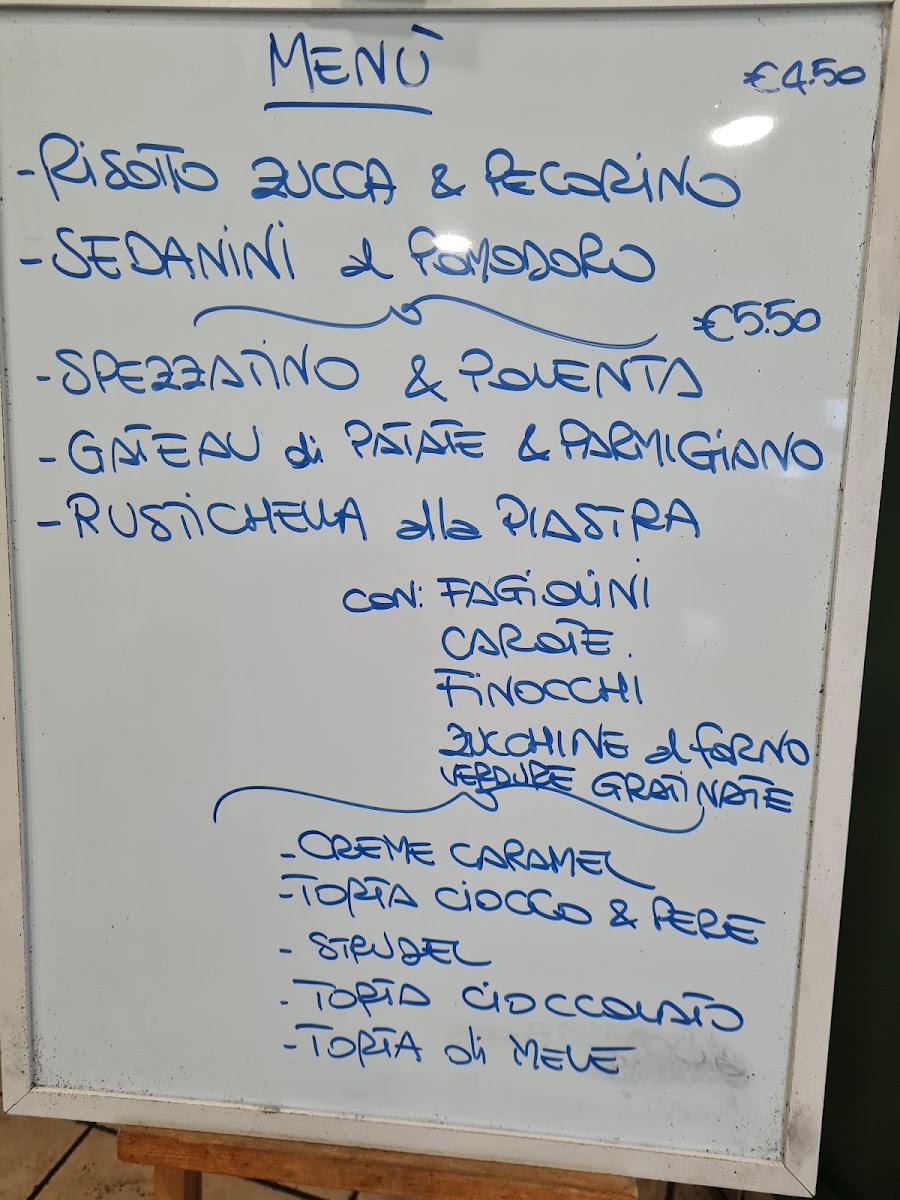 MENÙ
€4.50
-RISOTTO ZUCCA & PECORINO
-SEDANINI al POMODORO
€5.50
-SPEZZATINO & POLENTA
-GATEAU di PATATE & PARMIGIANO
-RUSTICHELLA alla PIASTRA
CON: FAGIOLINI
CAROTE.
FINOCCHI
ZUCCHINE al FORNO
VERDURE GRATINATE
-CREME CARAMEL
-TORTA CIOCCO & PERE
-STRUDEL
-TORTA CIOCCOLATO
-TORTA di MELE